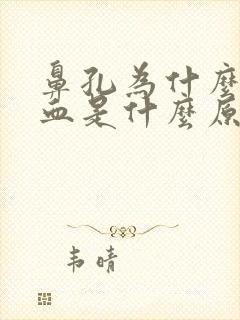 鼻孔為什麼
血是什麼原
韦晴